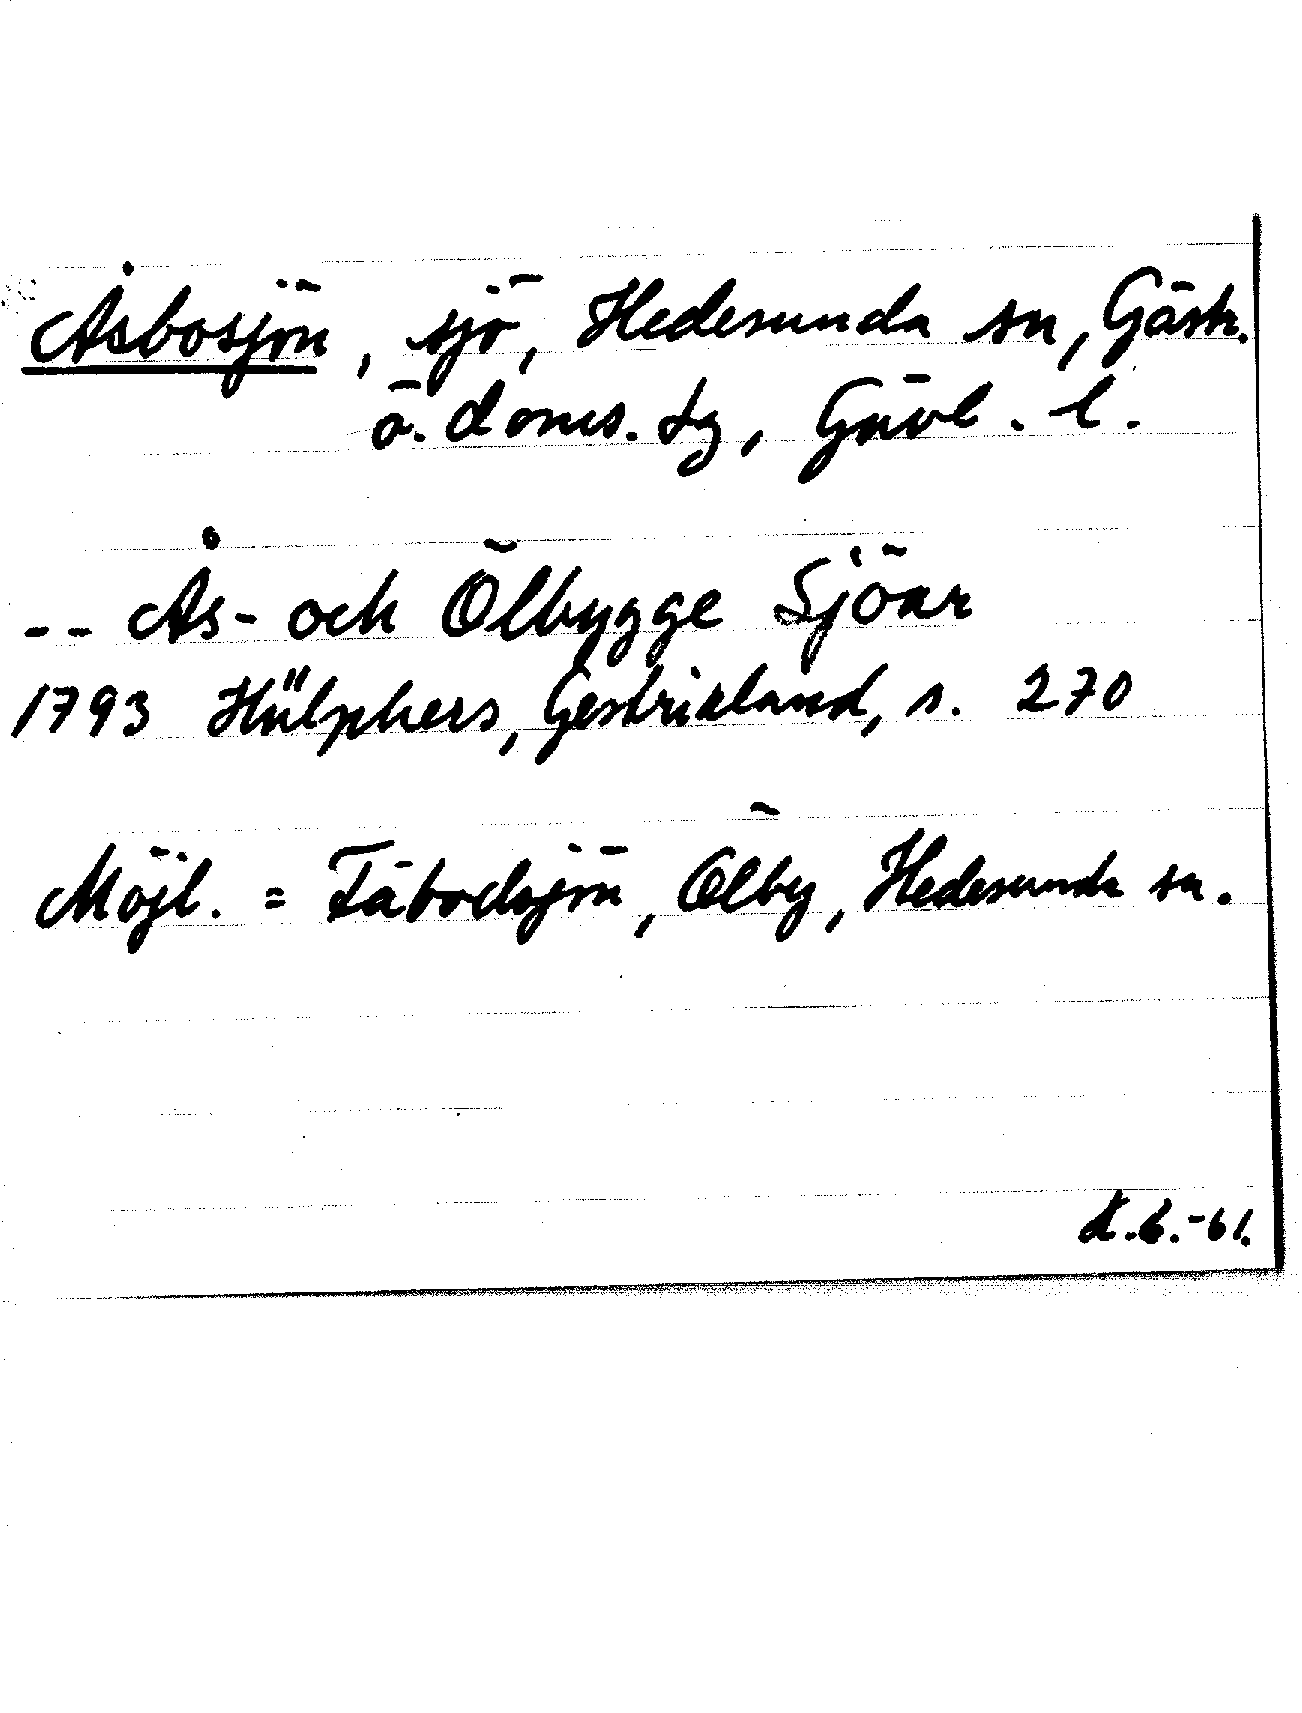 Åsbosjön, sjö, Hedesunda sn, Gästr.
ö. doms. tg, Gävl. l.
-- Ås- och Ölbygge Sjöar
1793 Hülphers, Gestrikland, s. 270
Möjl. = Fäbodsjön, Ölby, Hedesunda sn.